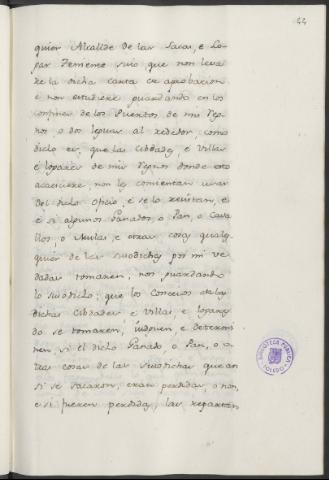 44
quier Alcalde de las Sacas, e Lo-
gar Teniente suio que non leva-
re la dicha carta de aprobacion
e non estudiere guardando en los
confines de los Puertos de mis Reg-
nos o dos leguas al rededor, como
dicho es, que las Cibdades, e Villas
e logares de mis Regnos donde esto
acaesciere, non les consientan usar
del dicho oficio, e se lo resistan, e
e si algunos Ganados o Pan, o Cava-
llos, o Mulas, e otras cosas quales-
quier de las susodichas por mi ve-
dadas tomaren, non guardando
lo susodicho, que los Concejos de las
dichas Cibdades e Villas, e logares
do se tomaren, judguen, e determi-
nen, si el dicho Ganado o Pan, o o-
tras cosas de las susodichas que an-
si se sacaron, eran perdidas, o non,
e si fueren perdidas, las repartan
BIBLIOTECA PUBLICA
TOLEDO